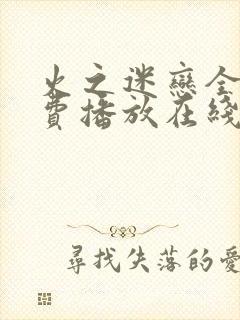 火之迷戀全
費播放在綫
尋找失落的愛